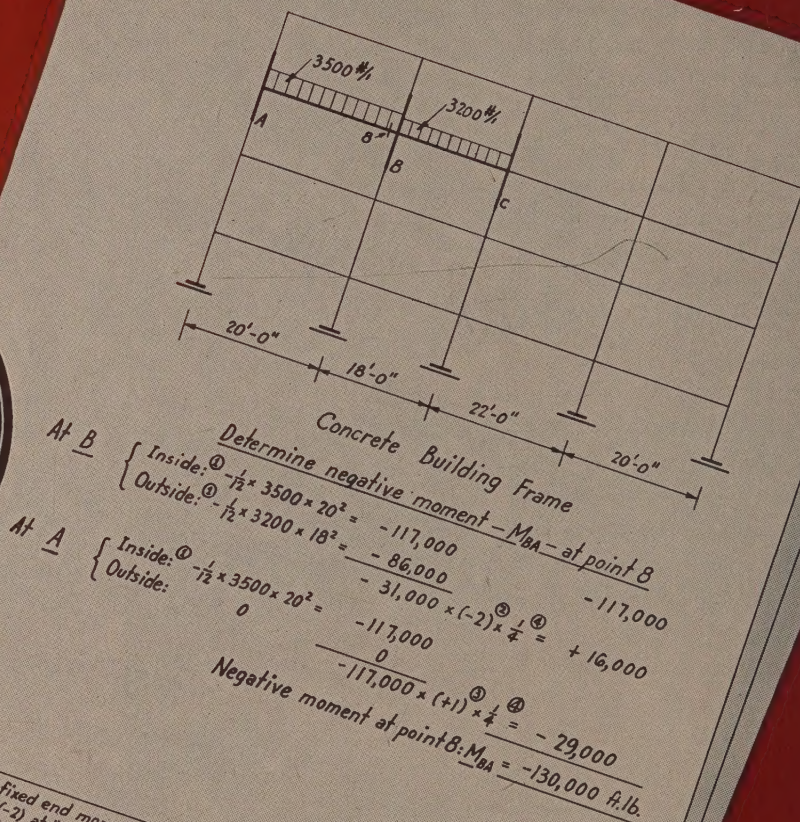 3500 #/₁
3200 #/₁
A
8
B
C
20'-0"
18'-0"
22'-0"
20'-0"
Concrete Building Frame
Determine negative moment — M_BA — at point 8
-117,000
At B
Inside: ① -1/12 × 3500 × 20² = -117,000
Outside: ① -1/12 × 3200 × 18² = -86,000
-31,000 × (-2)② × 1/4④ = +16,000
At A
Inside: ① -1/12 × 3500 × 20² = -117,000
Outside: 0 0
-117,000 × (+1)③ × 1/4④ = -29,000
Negative moment at point 8: M_BA = -130,000 ft.lb.
fixed end
(-2) at